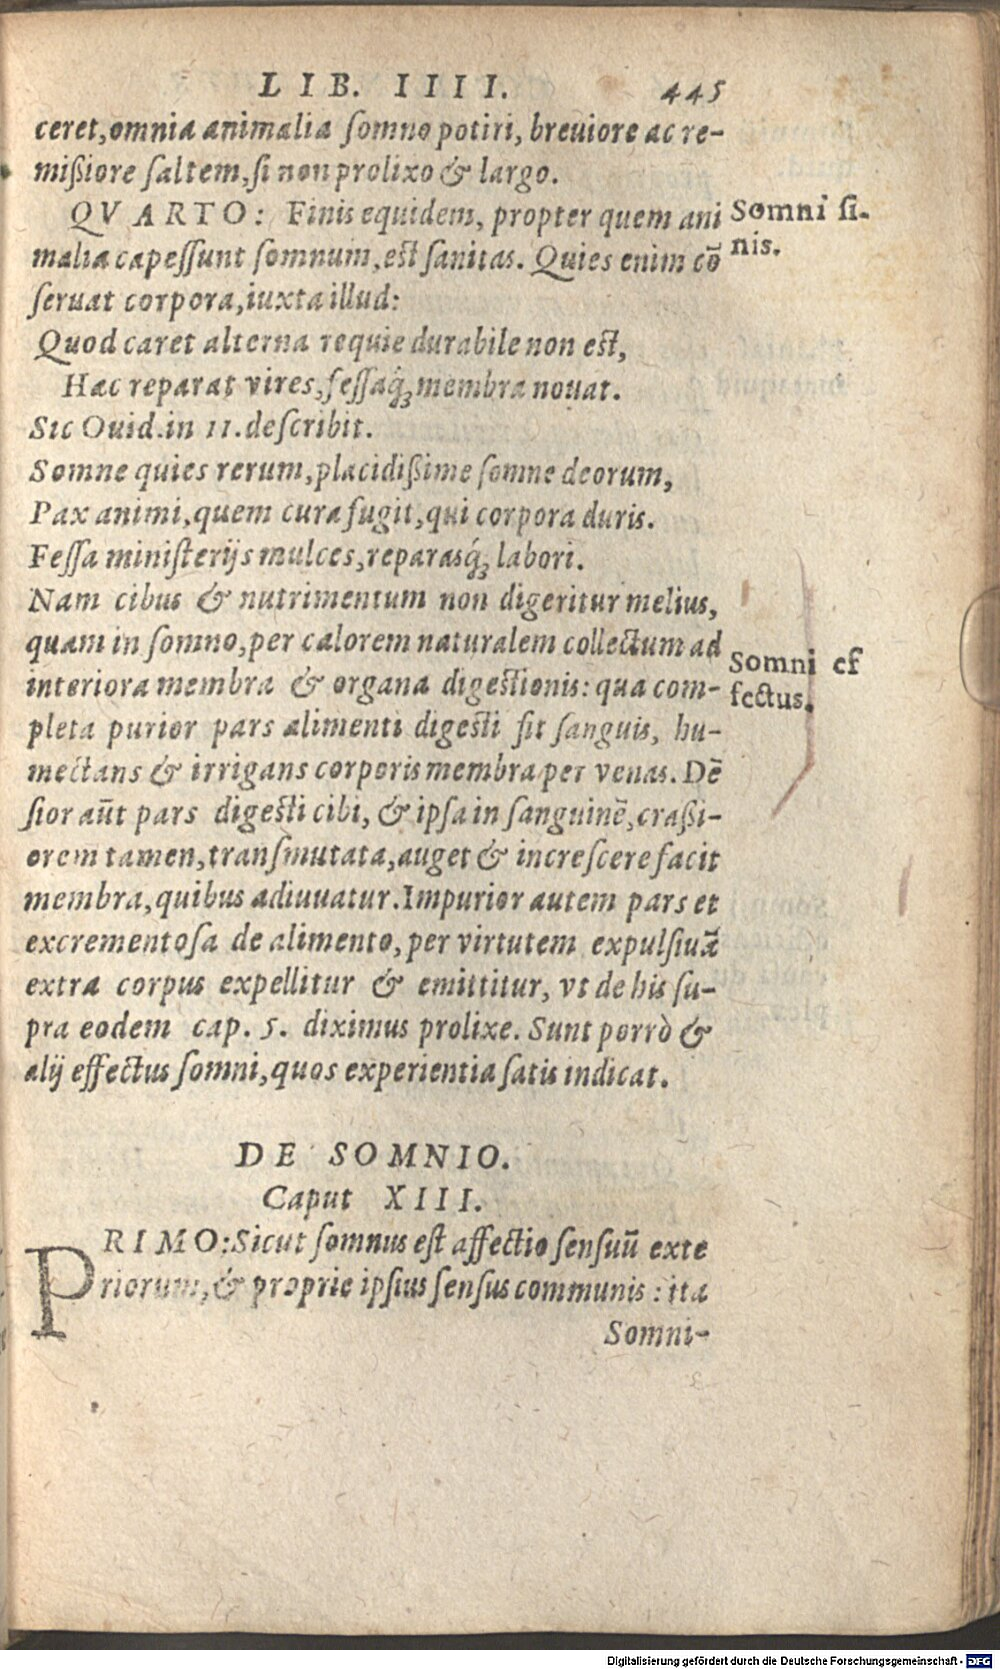 LIB. IIII. 445
ceret, omnia animalia ſomno potiri, breuiore ac re-
mißiore ſaltem, ſi non prolixo & largo.
QVARTO: Finis equidem, propter quem ani
malia capeſſunt ſomnum, eſt ſanitas. Quies enim cō
ſeruat corpora, iuxta illud:
Somni fi-
nis.
Quod caret alterna requie durabile non eſt,
Hac reparat vires, feſſaq́ꝫ membra nouat.
Sic Ouid. in 11. deſcribit.
Somne quies rerum, placidißime ſomne deorum,
Pax animi, quem cura fugit, qui corpora duris.
Feſſa miniſterijs mulces, reparasq́ꝫ labori.
Nam cibus & nutrimentum non digeritur melius,
quam in ſomno, per calorem naturalem collectum ad
interiora membra & organa digeſtionis: qua com-
pleta purior pars alimenti digeſti fit ſanguis, hu-
mectans & irrigans corporis membra per venas. Dē
ſior aūt pars digeſti cibi, & ipſa in ſanguinē, craßi-
orem tamen, tranſmutata, auget & increſcere facit
membra, quibus adiuuatur. Impurior autem pars et
excrementoſa de alimento, per virtutem expulſiuā
extra corpus expellitur & emittitur, vt de his ſu-
pra eodem cap. 5. diximus prolixe. Sunt porrò &
alij effectus ſomni, quos experientia ſatis indicat.
Somni ef
fectus.
DE SOMNIO.
Caput XIII.
PRIMO: Sicut ſomnus eſt affectio ſenſuū exte
riorum, & proprie ipſius ſenſus communis: ita
Somni-
Digitalisierung gefördert durch die Deutsche Forschungsgemeinschaft - DFG